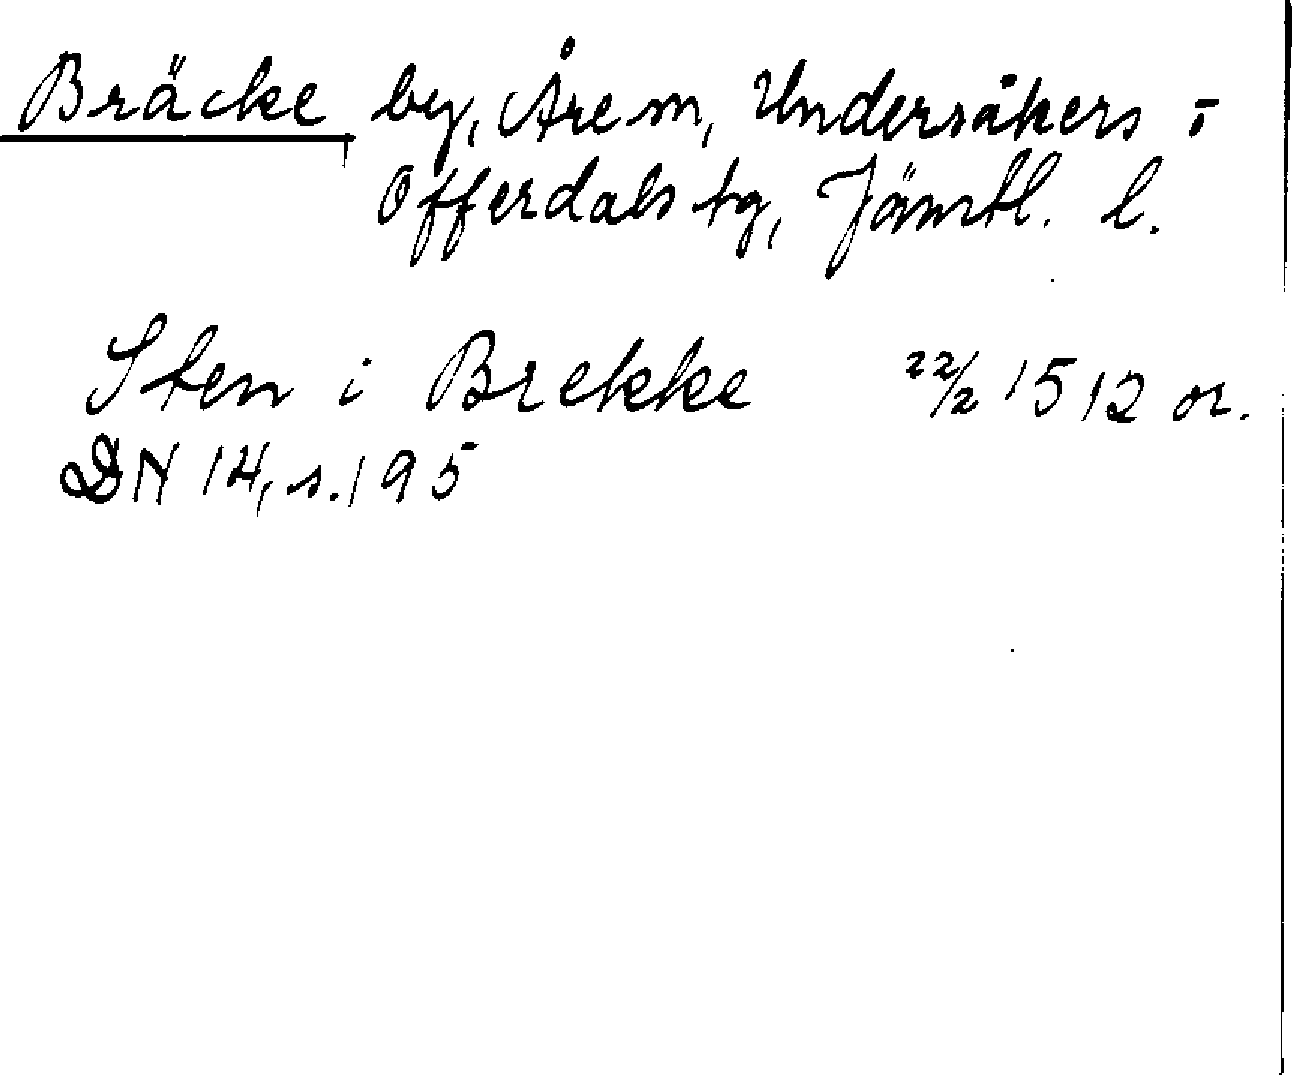 Bräcke by, Åre sn, Undersåkers o
Offerdals tg, Jämtl. l.
Sten i Brekke 22/2 1512 or.
DN 14, s. 195